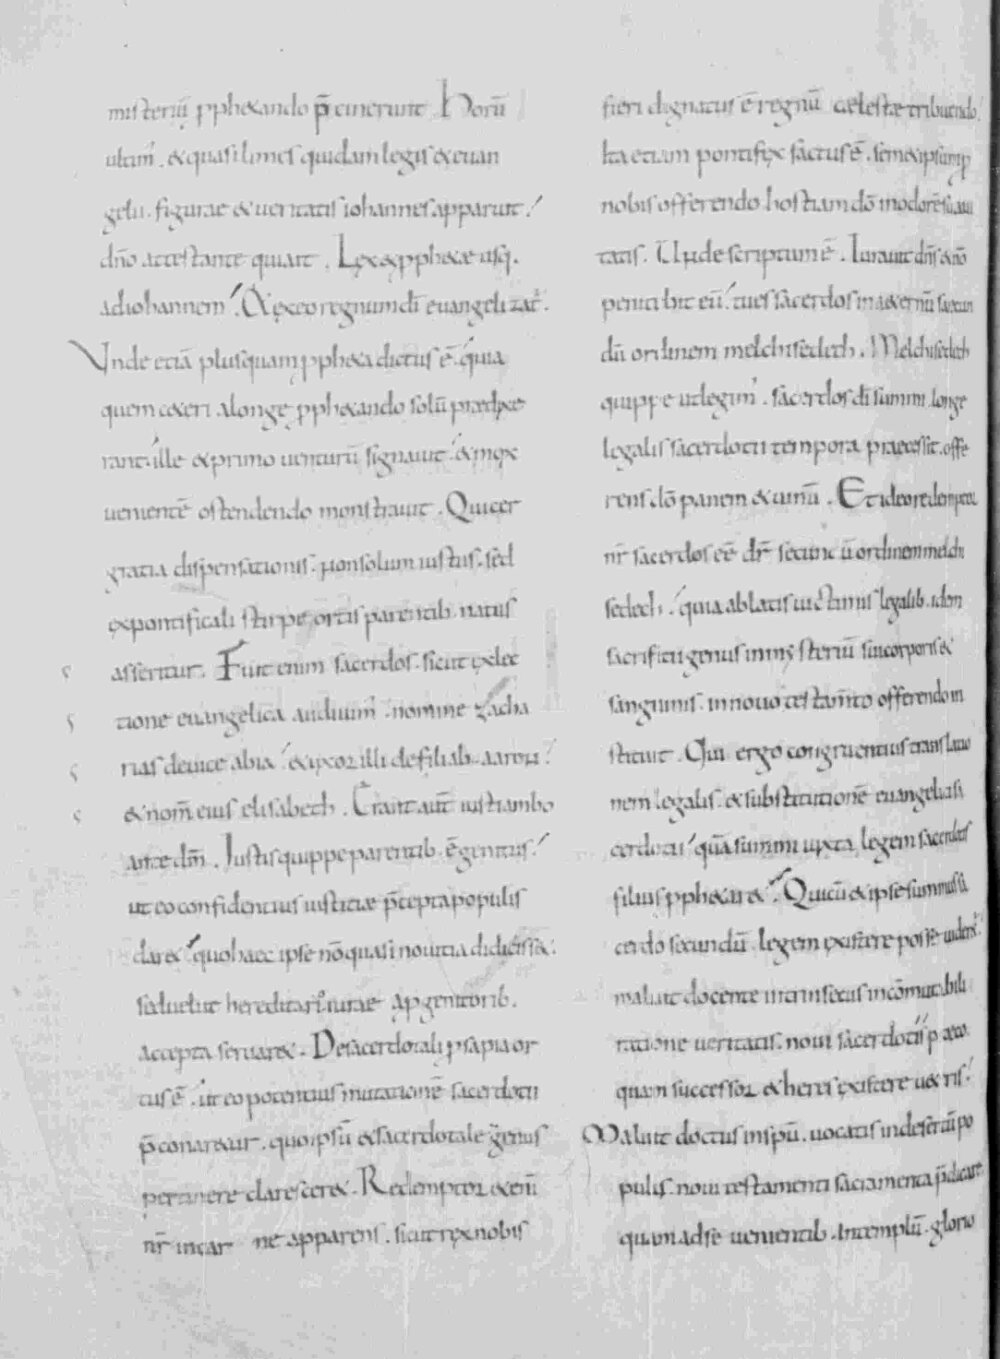 misteriū pphetando p̄cinerunt. Horū
ultim'. & quasi limes quidam legis & euan
gelii. figurae & ueritatis iohannes apparuit.
dn̄o attestante qui ait. Lex & pphetae usq.
ad iohannem. Ex eo regnum dī euangelizat'.
Vnde etiā plus quam ppheta dictus ē. quia
quem ceteri a longe pphetando solū praedixe
rant. ille & primo uenturū signauit. & mox
uenientē ostendendo monstrauit. Qui cer
gratia dispensationis. non solum iustus. sed
ex pontificali stirpe ortis parentib. natus
asseritur. Fuit enim sacerdos. sicut ex lec
tione euangelica audiuim'. nomine zacha
rias de uice abia. & uxor illi de filiab. aaron.
& nom̄ eius elisabeth. Erant aut̄ iusti ambo
ante dm̄. Iustis quippe parentib. ē genitus.
ut eo confidentius iusticiae p̄cepta populis
daret. quo haec ipse nō quasi nouitia didicisset.
sed uelut hereditario iure a p genitorib.
accepta seruaret. De sacerdotali psapia or
tus ē. ut eo potentius mutationē sacerdotii
p̄conaretur. quo ipsū & sacerdotale genus
pertinere claresceret. Redemptor etenī
nr̄ in car ne apparens. sicut rex nobis
fieri dignatus ē regnū caeleste tribuendo
Ita etiam pontifex factus ē. sem&ipsum p
nobis offerendo hostiam dō in odorē suaui
tatis. Unde scriptum ē. Iurauit dn̄s & nō
penitebit eū. tu es sacerdos in aeternū secun
dū ordinem melchisedech. Melchisedech
quippe ut legim'. sacerdos dī summi. longe
legalis sacerdotii tempora praecessit. offe
rens dō panem & uinū. Et ideo redemptor
nr̄ sacerdos eē dr̄ secundū ordinem melchi
sedech. quia ablatis uictimis legalib. idem
sacrificii genus in mysteriū sui corporis &
sanguinis. in nouo testam̄to offerendo in
stituit. Qui ergo congruentius translatio
nem legalis. & substitutionē euangelici sa
cerdotii. quā summi iuxta legem sacerdotis
filius pphetaret. Qui cū & ipse summus sa
cerdo secundū legem existere posse uideret'.
maluit docente intrinsecus incōmutabili
ratione ueritatis. noui sacerdotii p aeco.
quam successor & heres existere ueteris.
Maluit doctus in spū. uocatis in desertū po
pulis. noui testamenti sacramenta p̄dicare
quam ad se uenientib. in templū. glorio